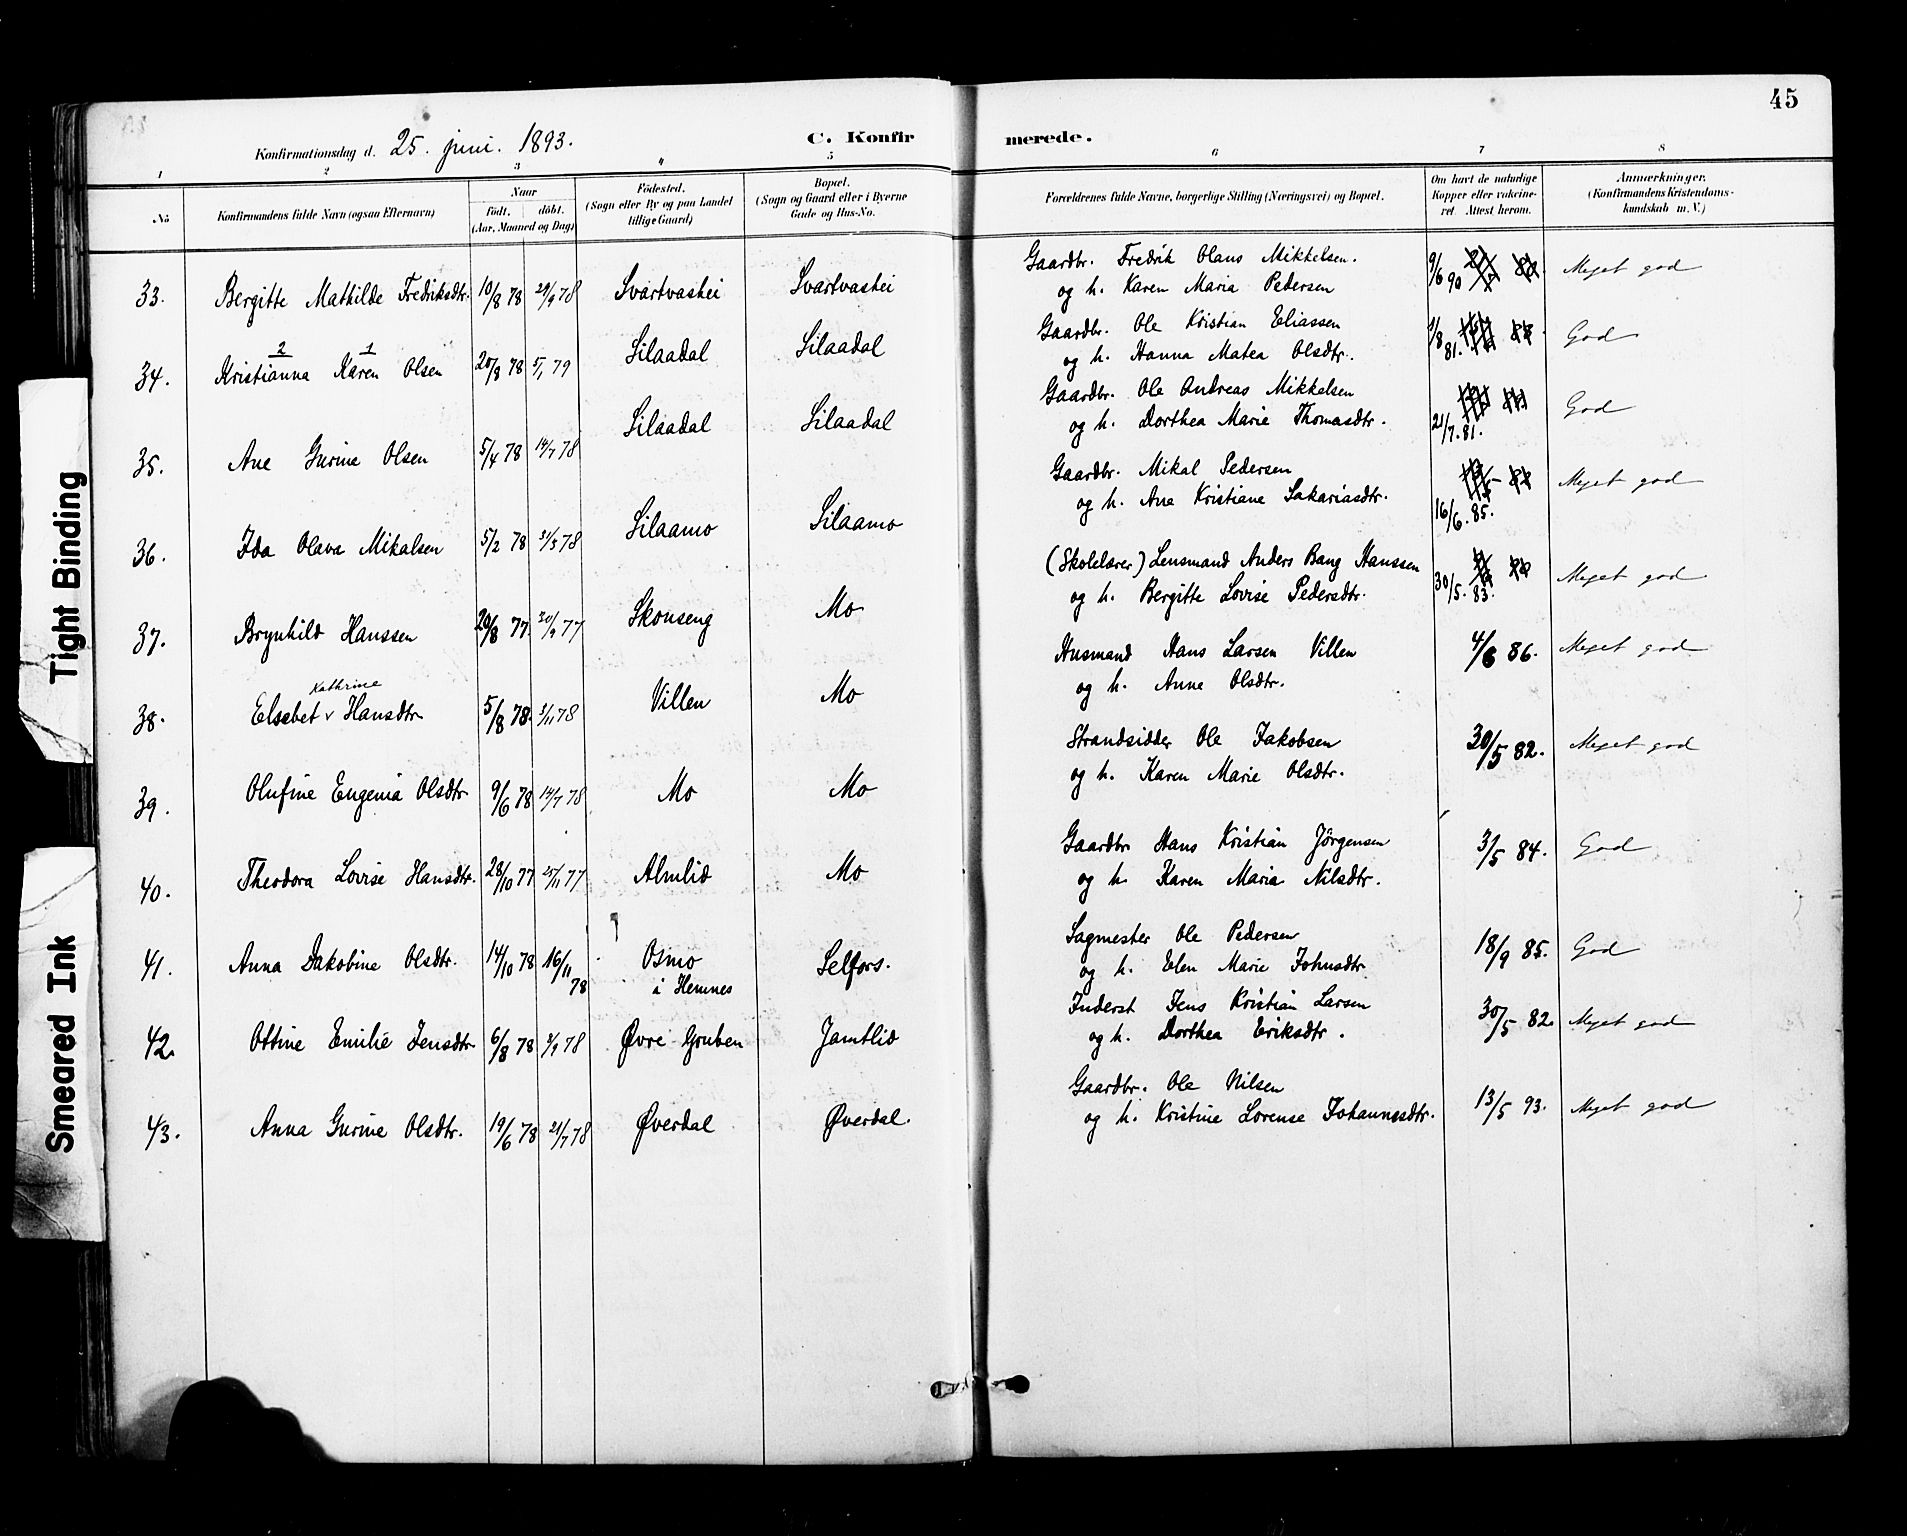 45
Konfirmationsdag d. 25. juni. 1893. C. Konfirmerede.
1 2 3 4 5 6 7 8
No
Konfirmandens fulde Navn (ogsaa Efternavn)
Naar
født, døbt.
(Aar, Maaned og Dag)
Fødested.
(Sogn eller By og paa Landet
tillige Gaard)
Bopæl.
(Sogn og Gaard eller i Byerne
Gade og Hus-No.
Forældrenes fulde Navne, borgerlige Stilling (Næringsvei) og Bopæl.
Om havt de naturlige
Kopper eller vakcine-
ret. Attest herom.
Anmærkninger.
(Konfirmandens Kristendoms-
kundskab m. V.)
33. Bergitte Mathilde Fredriksdtr. 10/8 78 29/9 78 Svartvashei Svartvashei
Gaardbr. Fredrik Olaus Mikkelsen.
og h. Karen Maria Pedersen
9/6 90 Meget god
34. Kristianna 2 Karen 1 Olsen 20/8 78 5/1 79 Silaadal Silaadal
Gaardbr. Ole Kristian Eliassen
og h. Hanna Matea Olsdtr.
1/8 81. God
35. Ane Gurine Olsen 5/4 78 14/7 78 Silaadal Silaadal
Gaardbr. Ole Andreas Mikkelsen
og h. Dorthea Marie Thomasdtr.
21/7. 81. God
36. Ida Olava Mikalsen 5/2 78 31/3 78 Silaamo Silaamo
Gaardbr. Mikal Pedersen
og h. Ane Kristiane Sakariasdtr.
16/6. 85. Meget god
37. Brynhild Hanssen 20/8 77. 30/9 77 Skonseng Mo
(Skolelærer) Lensmand Anders Bang Hanssen
og h. Bergitte Lovise Pedersdtr.
30/5. 83. Meget god
38. Elsebet v Hansdtr 5/8 78. 3/11 78 Villen Mo
Kathrine
Husmand Hans Larsen Villen
og h. Anne Olsdtr.
4/6 86. Meget god
39. Olufine Eugenia Olsdtr 9/6 78 14/7 78 Mo Mo
Strandsidder Ole Jakobsen
og h. Karen Marie Olsdtr.
30/5 82. Meget god
40. Theodora Lovise Hansdtr. 28/10 77 25/11 77 Almlid Mo
Gaardbr Hans Kristian Jörgensen
og h. Karen Maria Nilsdtr.
31/5 84. God
41. Anna Jakobine Olsdtr. 14/10 78 16/11 78 Osmo
i Hemnes Selfors.
Sagmester Ole Pedersen
og h. Elen Marie Johnsdtr
18/9 85. God
42. Ottine Emilie Jensdtr 6/8 78 78 Øvre Gruben Jamtlid
Inderst Jens Kristian Larsen
og h. Dorthea Eriksdtr.
30/5 82. Meget god
43. Anna Gurine Olsdtr. 19/6 78 21/7 78 Øverdal Øverdal.
Gaardbr. Ole Nilsen
og h. Kristine Lorense Johannesdtr.
13/5 93. Meget god
Tight Binding
Smeared Ink